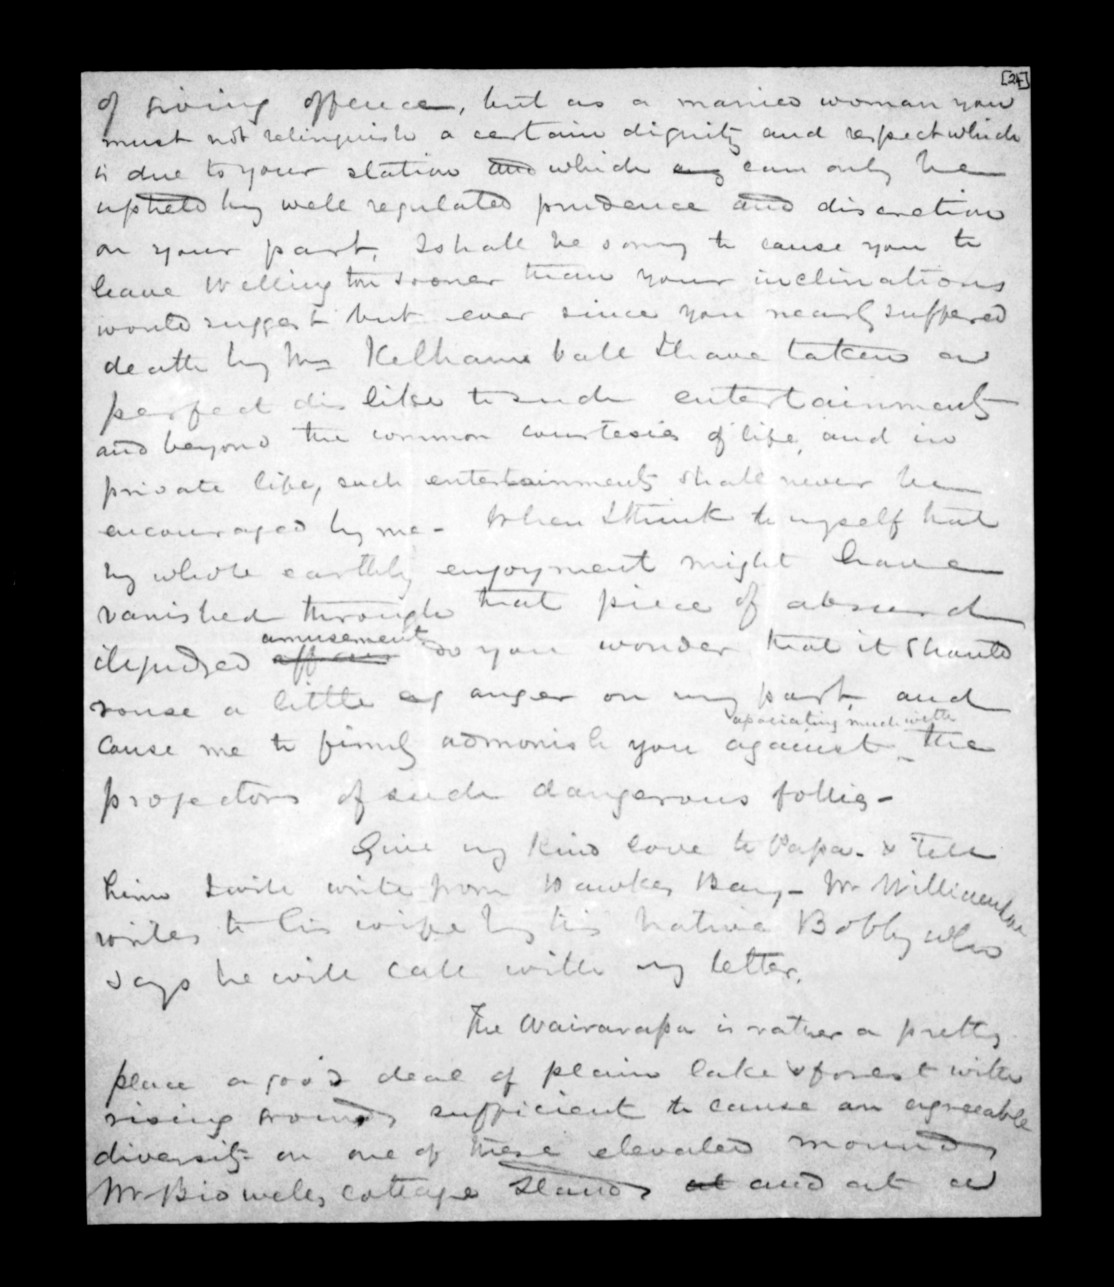 [24]
of giving offence, but as a married woman you
must not relinquish a certain dignity and respect which
is due to your station and which any can only be
upheld by well regulated prudence and discretion
on your part, I shall be sorry to cause you to
leave Wellington sooner than your inclinations
would suggest but ever since you nearly suffered
death by Mrs Kelhams ball I have taken a
perfect dislike to such entertainments
and beyond the common courtesies of life, and in
private life, such entertainments shall never be
encouraged by me - When I think to myself that
my whole earthly enjoyment might have
vanished through that piece of absurd
amusement
illjudged affair do you wonder that it should
rouse a little of anger on my part, and
apociating much with
cause me to firmly admonish you against the
projectors of such dangerous follies -
Give my kind love to Papa. & tell
him I will write from Hawkes Bay - Mr Williamson
writes to his wife by his native Bobby who
says he will call with my letter.
The Wairarapa is rather a pretty
place a good deal of plain lake & forest with
rising grounds sufficient to cause an agreeable
diversity on one of these elevated mounds
Mr Bidwells cottage stands at and at a